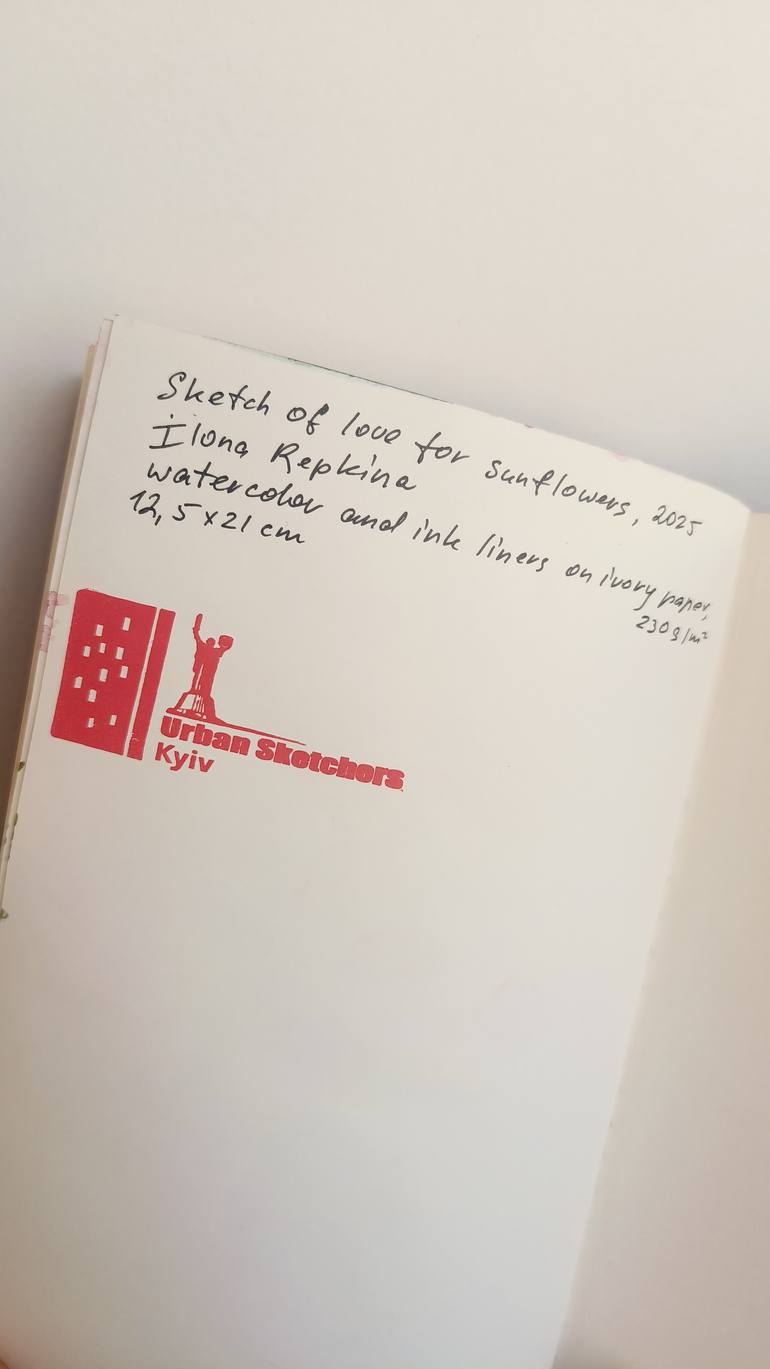 Sketch of love for sunflowers, 2025
Ilona Repkina
watercolor and ink liners on ivory paper,
230 g/m²
12,5x21 cm
Urban Sketchers
Kyiv